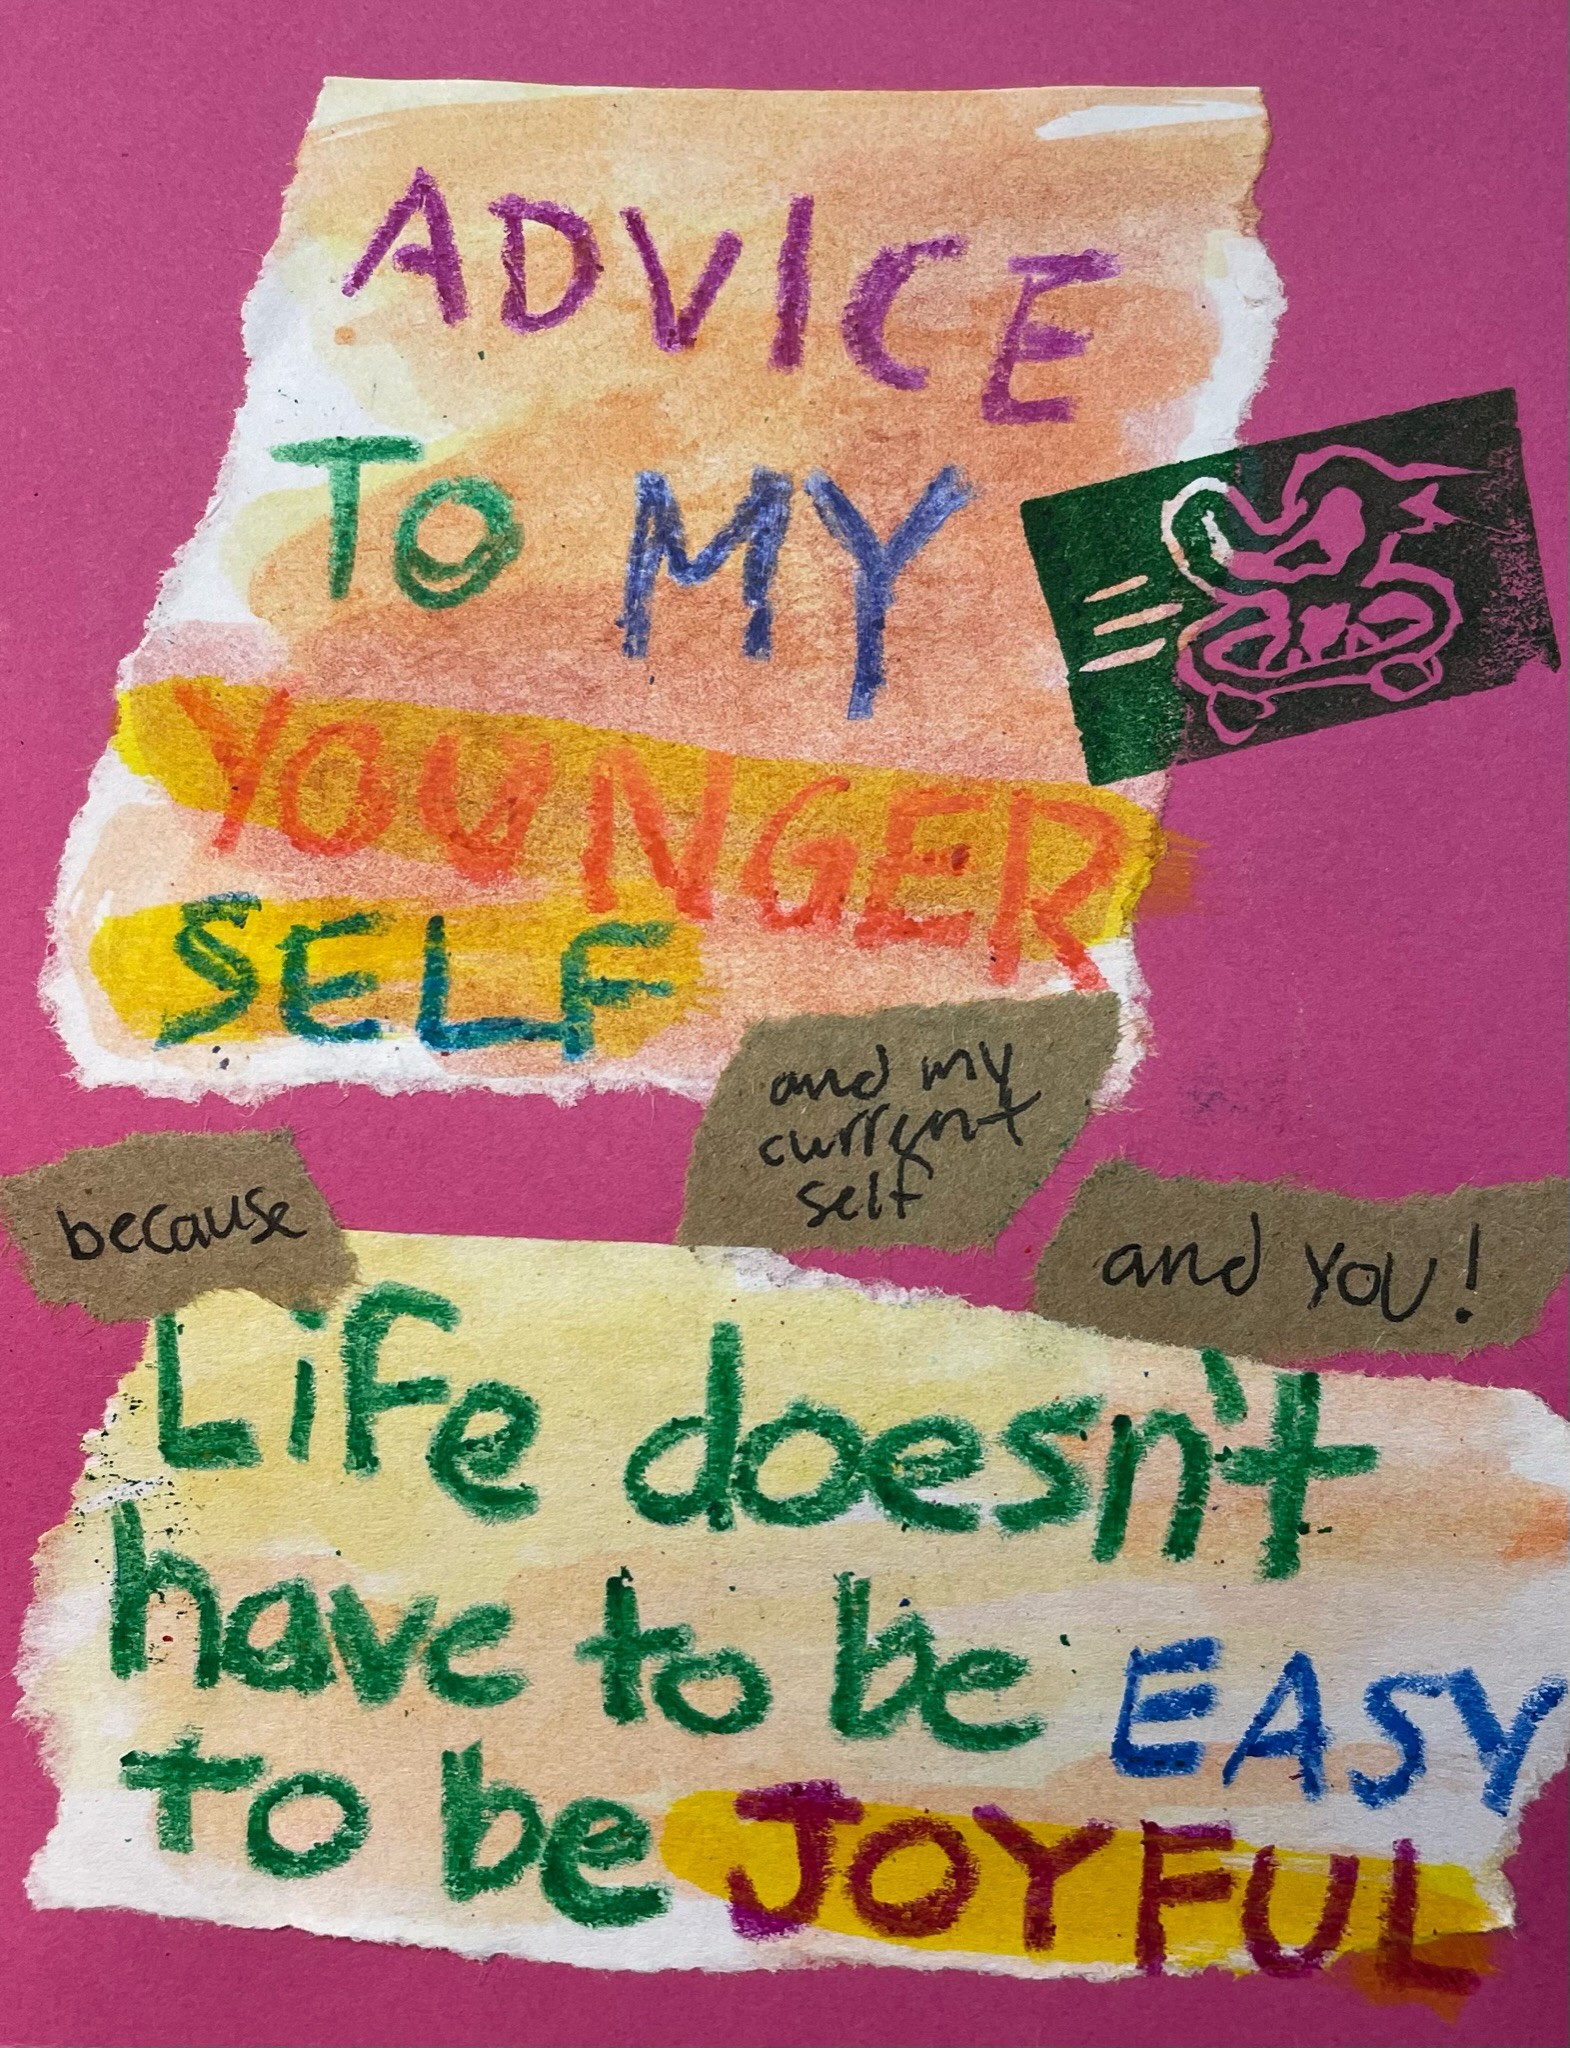 ADVICE
TO MY
YOUNGER
SELF
and my
current
self
and YOU!
because
Life doesn't
have to be EASY
To be JOYFUL